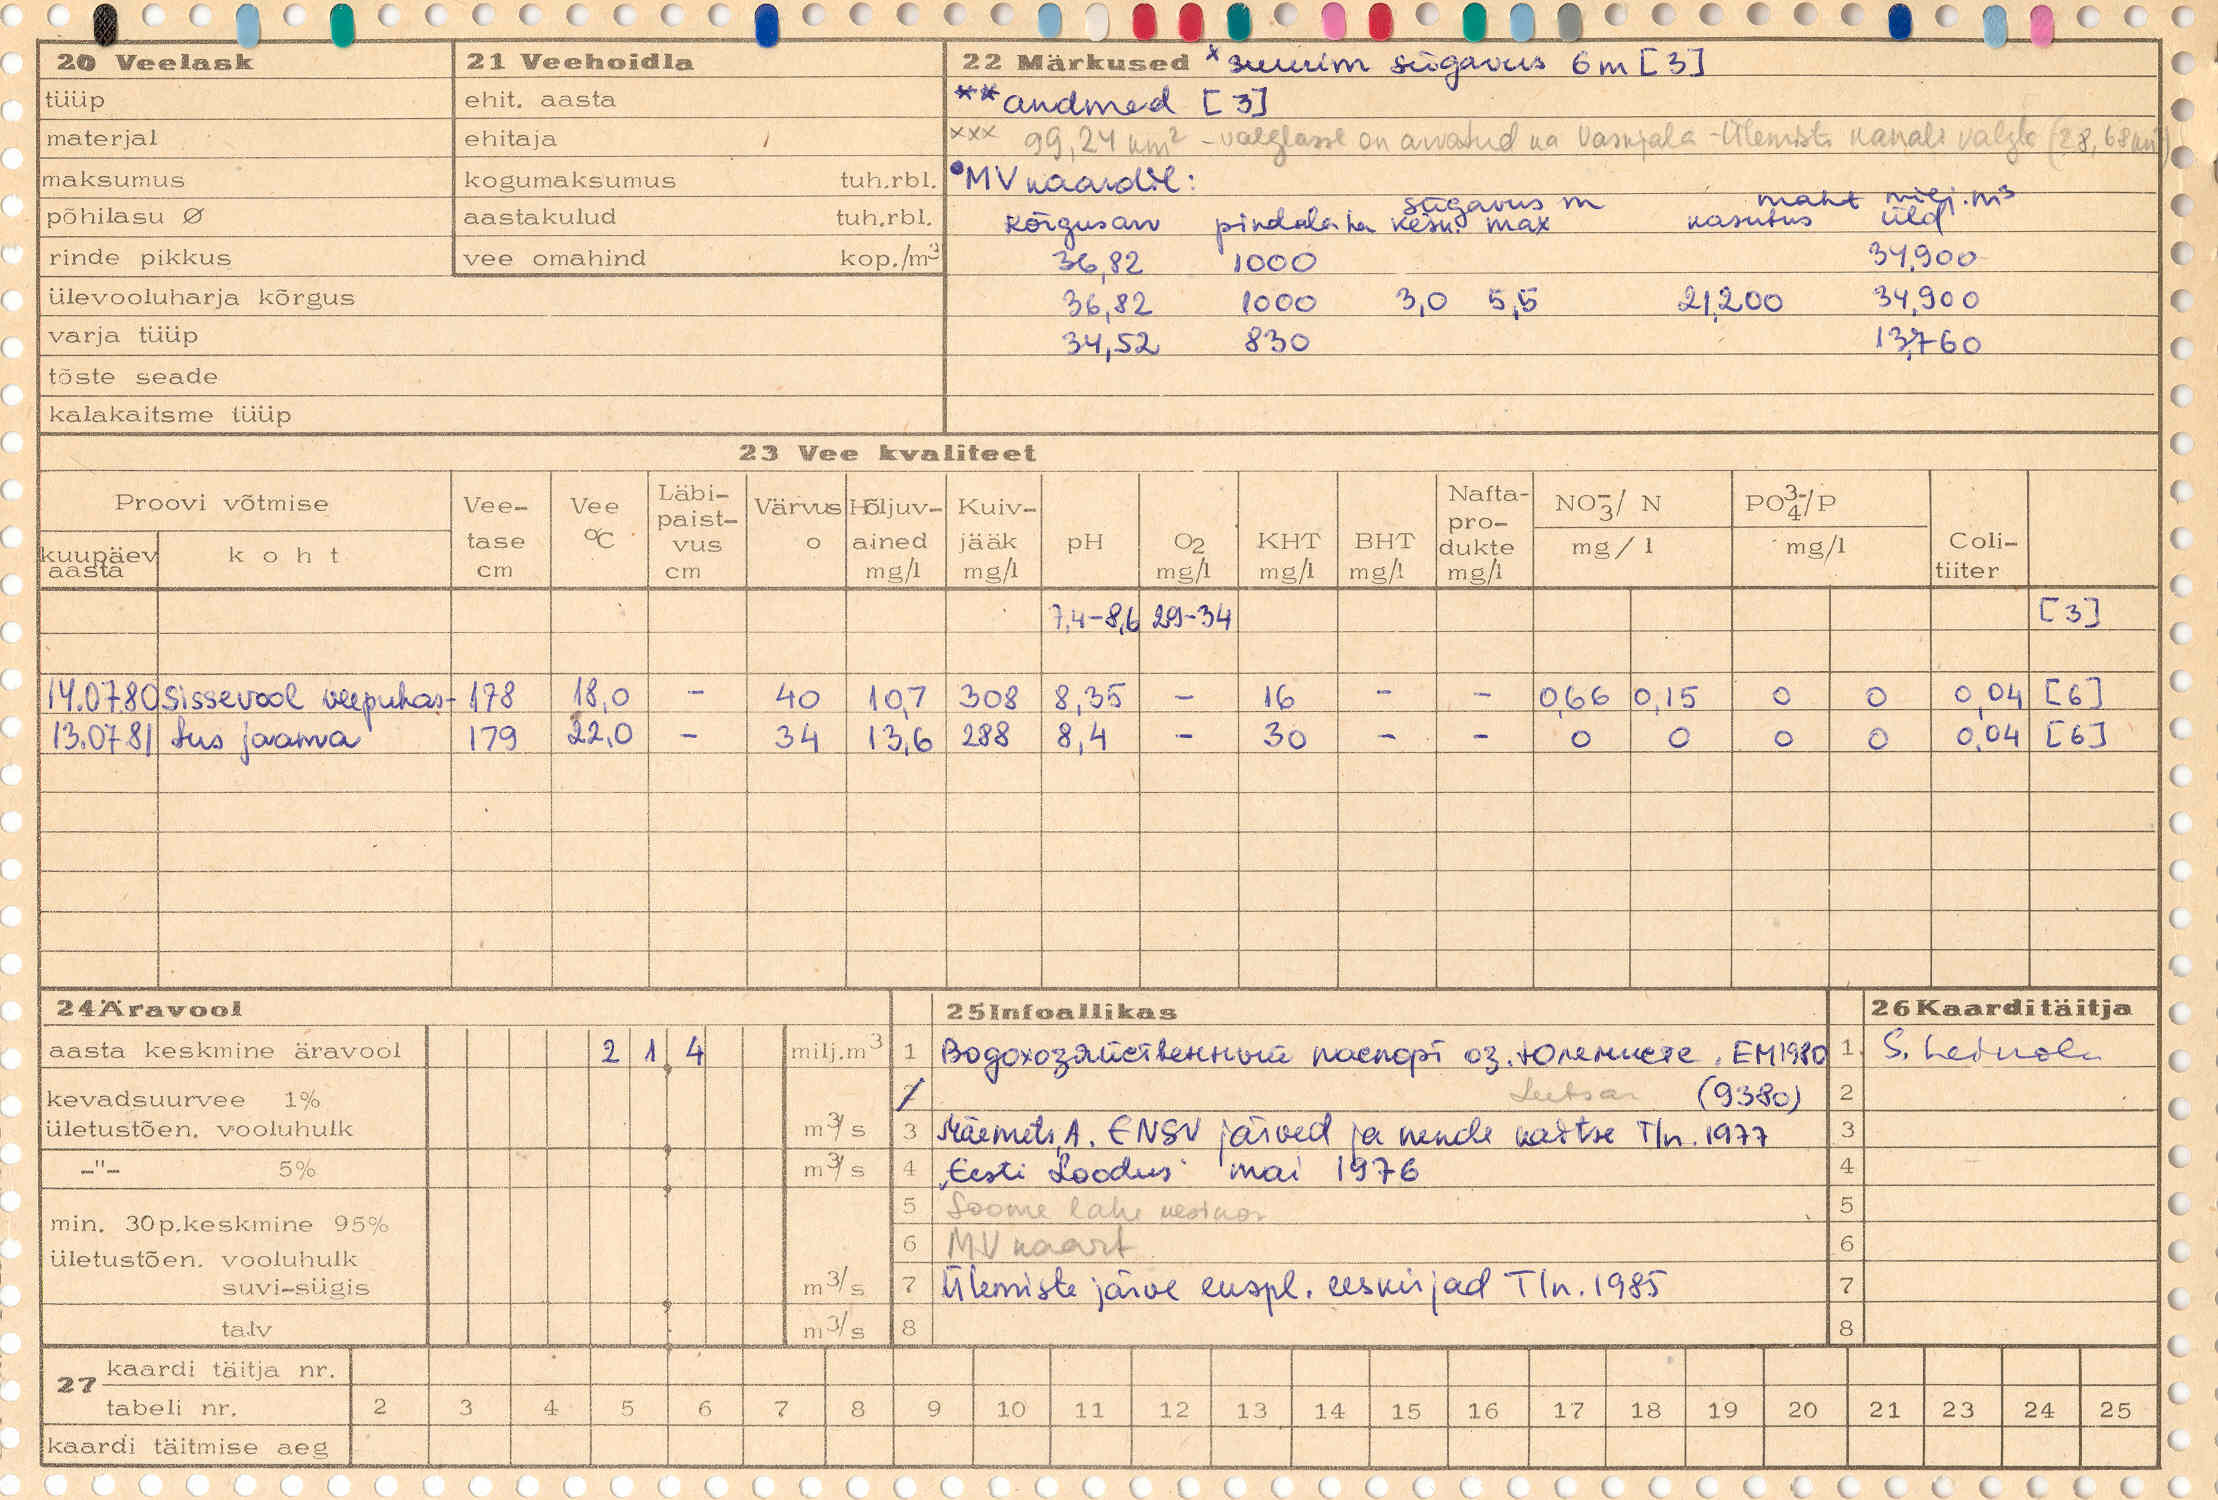 20 Veelask
tüüp
materjal
maksumus
põhilasu Ø
rinde pikkus
ülevooluharja kõrgus
varja tüüp
tõste seade
kalakaitsme tüüp
21 Veehoidla
ehit. aasta
ehitaja
kogumaksumus tuh.rbl.
aastakulud tuh.rbl.
vee omahind kop./m³
22 Märkused *suurim sügavus 6m [3]
**andmed [3]
xxx 99,24 km² - valglasse on arvatud ka Vaskjala-Ülemiste kanali valgla (28,68 km²)
•MV kaardil:
sügavus m maht milj.m³
kõrgusarv pindala ha kesk. max kasutus üld
36,82 1000 34,900
36,82 1000 3,0 5,5 21,200 34,900
34,52 830 13,760
23 Vee kvaliteet
Proovi võtmise
kuupäev aasta
koht
Vee-tase cm
Vee °C
Läbi-paist-vus cm
Värvus o
Hõljuv-ained mg/l
Kuiv-jääk mg/l
pH
O₂ mg/l
KHT mg/l
BHT mg/l
Nafta-pro-dukte mg/l
NO₃⁻/ N mg/l
PO₄³⁻/P mg/l
Coli-tiiter
7,4-8,6 29-34 [3]
14.07.80 Sissevool veepuhas- 178 18,0 - 40 10,7 308 8,35 - 16 - - 0,66 0,15 0 0 0,04 [6]
13.07.81 tus jaama 179 22,0 - 34 13,6 288 8,4 - 30 - - 0 0 0 0 0,04 [6]
24 Äravool
aasta keskmine äravool 2 1 4 milj.m³
kevadsuurvee 1%
ületustõen. vooluhulk m³/s
-"- 5% m³/s
min. 30p.keskmine 95%
ületustõen. vooluhulk
suvi-sügis m³/s
talv m³/s
25 Infoallikas
1 Водохозяйственный паспорт оз. Юлемисте. EM1980
2 (9380)
3 Mäemets, A. ENSV järved ja nende kaitse Tln. 1977
4 „Eesti Loodus" mai 1976
5 Soome lahe
6 MV kaart
7 Ülemiste järve ekspl. eeskirjad Tln. 1985
8
26 Kaarditäitja
1. S.
2
3
4
5
6
7
8
27 kaardi täitja nr.
tabeli nr. 2 3 4 5 6 7 8 9 10 11 12 13 14 15 16 17 18 19 20 21 23 24 25
kaardi täitmise aeg